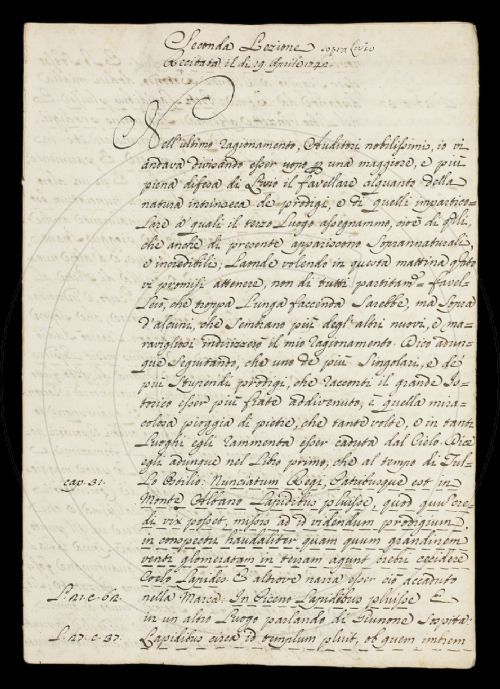 Seconda Lezione sopra Livio
Recitata il dì 19 Aprile 1742.
Nell'ultimo ragionamento, Auditori nobilissimi, io vi
andava divisando esser uopo una maggiore, e più
piena difesa di Livio il favellare alquanto della
natura intrinseca de prodigi, e di quelli impartico-
lare a' quali il terzo Luogo assegnammo, cioè di q.lli,
che anche di presente appariscono Soprannaturali,
e incredibili; Laonde volendo in questa mattina
vi promisi attenere, non di tutti partitam.e favel-
lerò, che troppa Lunga faccenda Sarebbe, ma Sopra
d'alcuni, che Sembrano più degl'altri nuovi, e ma-
ravigliosi indirizzerò il mio ragionamento. Dico adun-
que Seguitando, che uno de più Singolari, e de
più Stupendi prodigi, che racconti il grande Is-
torico esser più fiate addivenuto, è quella mira-
colosa pioggia di pietre, che tante volte, e in tanti
Luoghi egli rammenta esser caduta dal Cielo. Dice
egli adunque nel Libro primo, che al tempo di Tul-
cap. 31. lo Ostilio: Nunciatum Regi, Patribusque est in
Monte Albano Lapidibus pluisse, quod quum cre-
di vix posset, missis ad id videndum prodigium
in conspectu haud aliter quam quum grandinem
venti glomeratam in terras agunt crebri cecidere
Coelo Lapides. E altrove narra esser ciò accaduto
L. 21. c. 62. nella Marca: In Piceno Lapidibus pluisse E
in un altro Luogo parlando di Giunone Sospita:
L. 27. c. 37. Lapidibus circa id templum pluit, ob quem